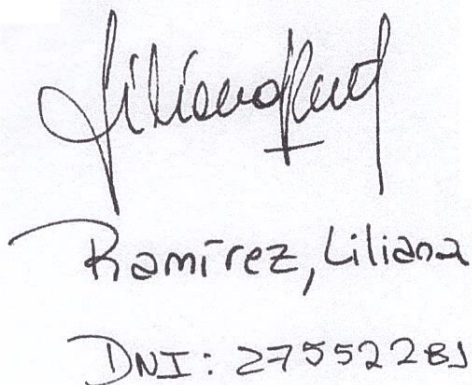 Ramírez, Liliana
DNI: 27552281